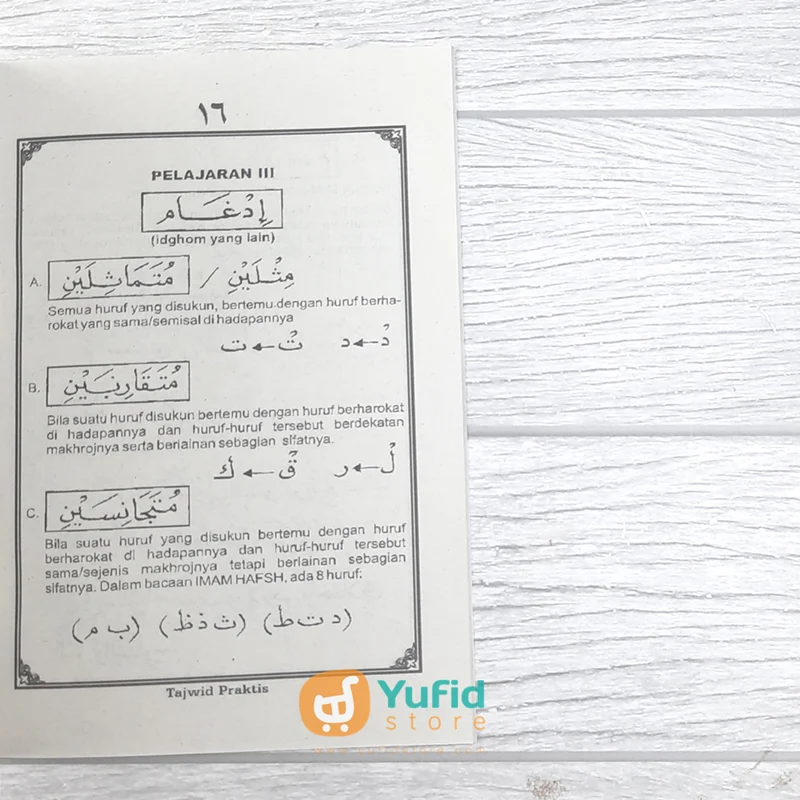 ١٦
PELAJARAN III
إِدْغَـــام
(idghom yang lain)
A. مُتَمَاثِلَيْنِ / مِثْلَيْنِ
Semua huruf yang disukun, bertemu dengan huruf berha-
rokat yang sama/semisal di hadapannya
دْ ← د تْ ← ت
B. مُتَقَارِبَيْنِ
Bila suatu huruf disukun bertemu dengan huruf berharokat
di hadapannya dan huruf-huruf tersebut berdekatan
makhrojnya serta berlainan sebagian sifatnya.
لْ ← ر قْ ← ك
C. مُتَجَانِسَيْنِ
Bila suatu huruf yang disukun bertemu dengan huruf
berharokat di hadapannya dan huruf-huruf tersebut
sama/sejenis makhrojnya tetapi berlainan sebagian
sifatnya. Dalam bacaan IMAM HAFSH, ada 8 huruf:
(د ت ط) (ث ذ ظ) (ب م)
Tajwid Praktis
Yufid
store